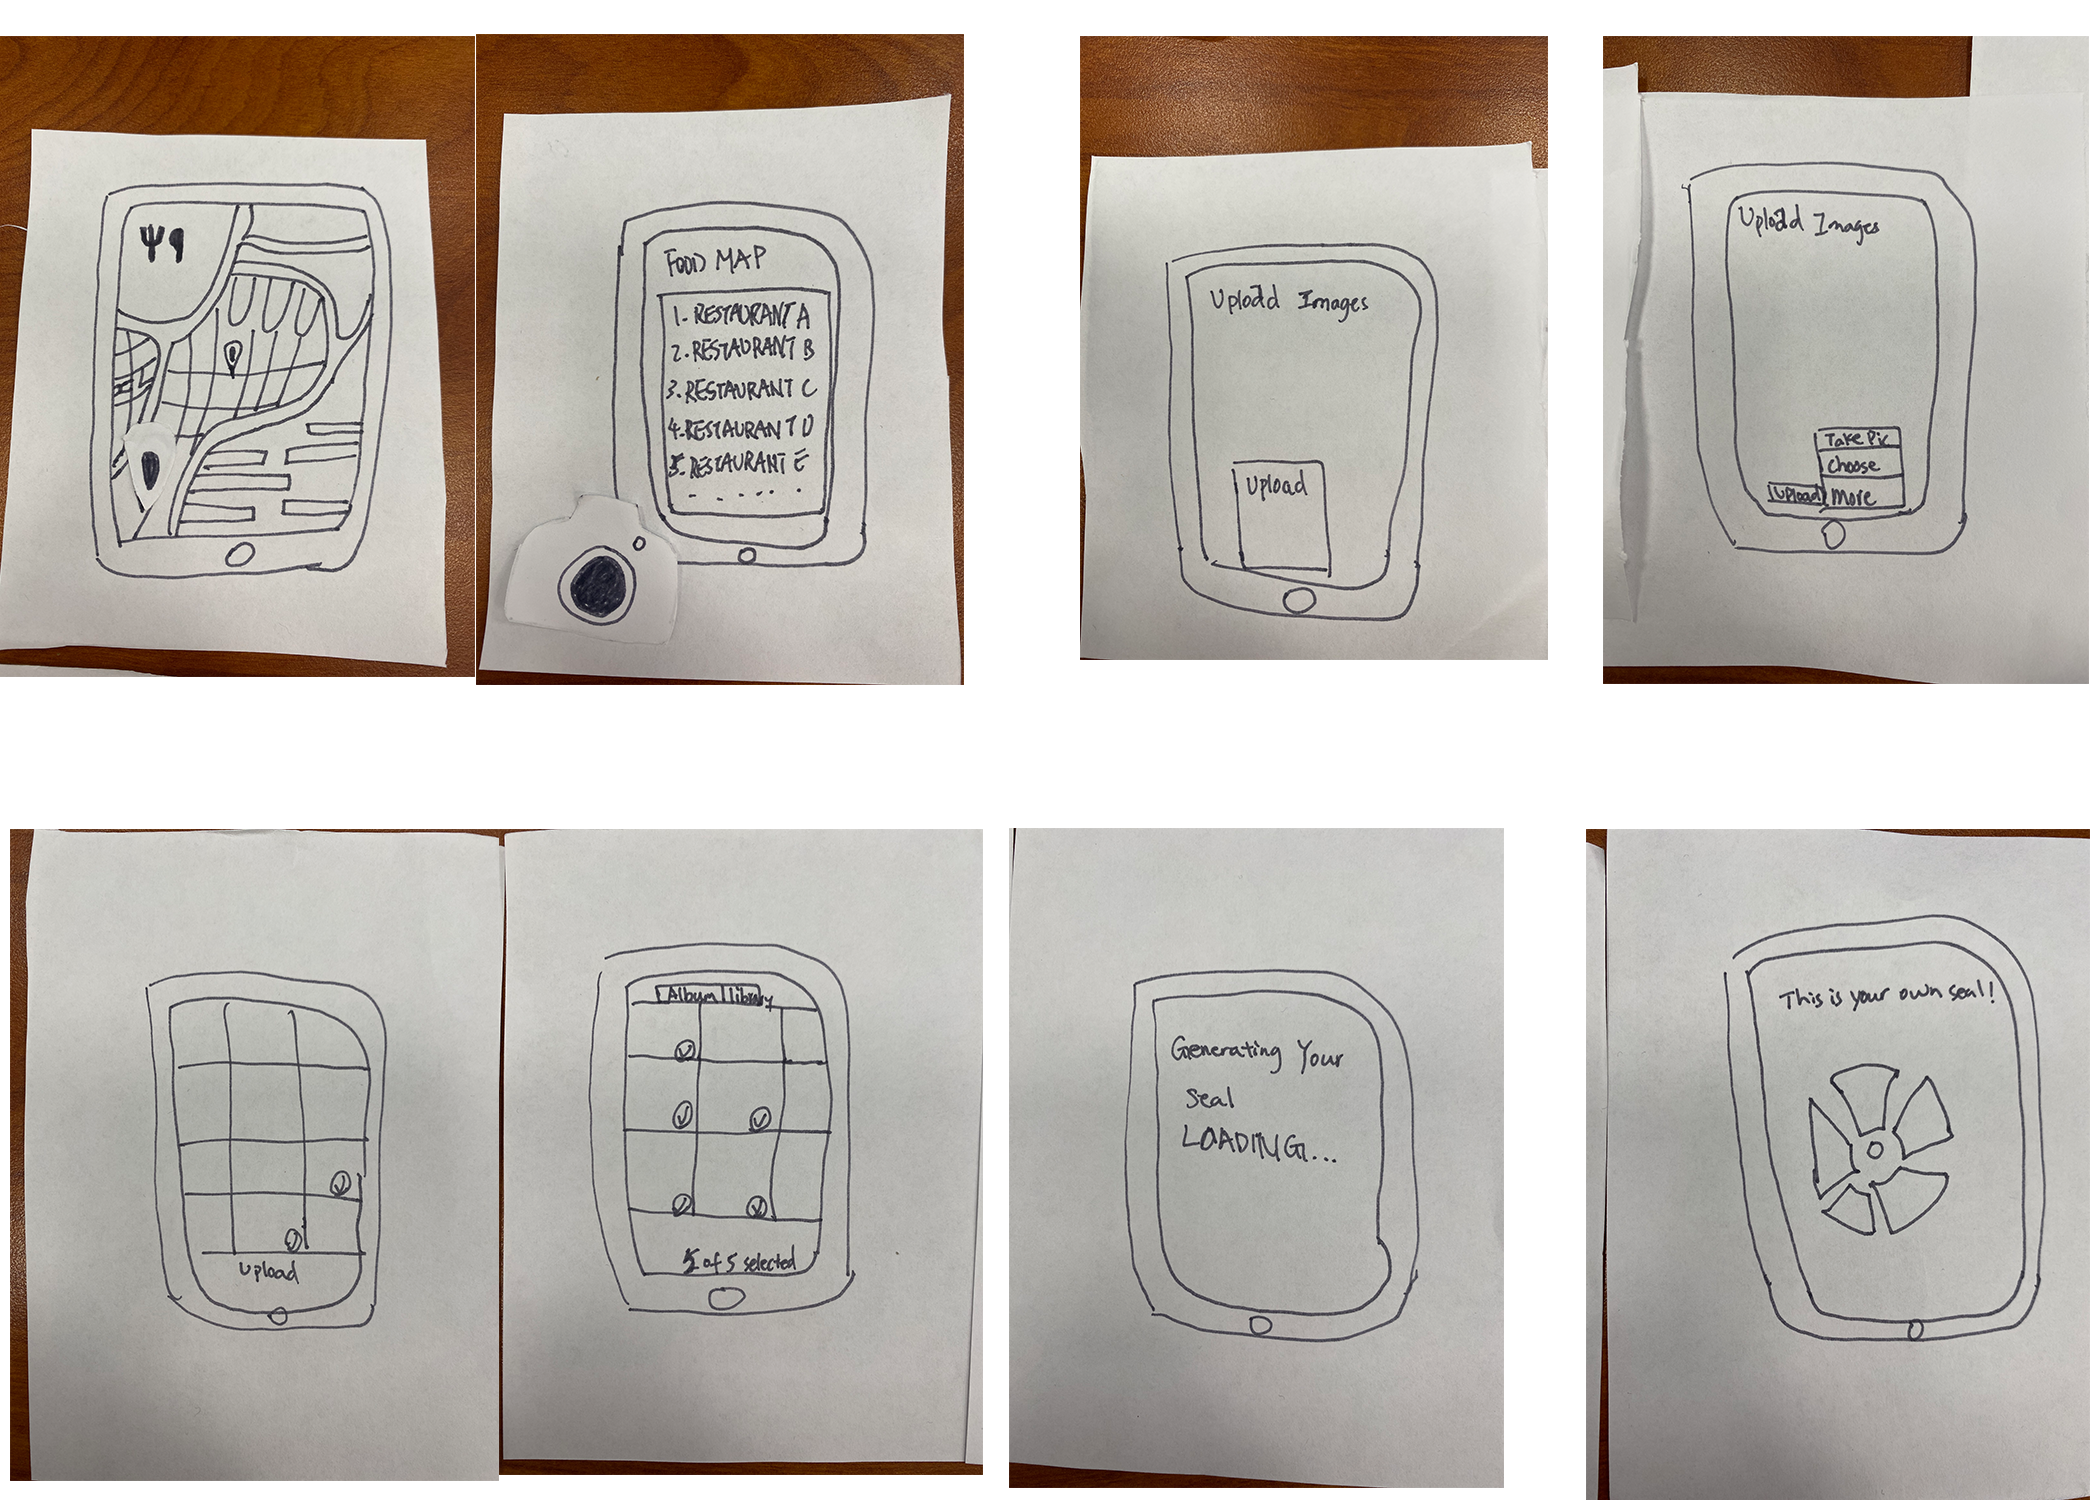 FOOD MAP
1. RESTAURANT A
2. RESTAURANT B
3. RESTAURANT C
4. RESTAURANT D
5. RESTAURANT E
......
Upload Images
Upload
Upload Images
Take Pic
Choose
Upload More
Upload
Album library
5 of 5 selected
Generating Your
Seal
LOADING...
This is your own seal!